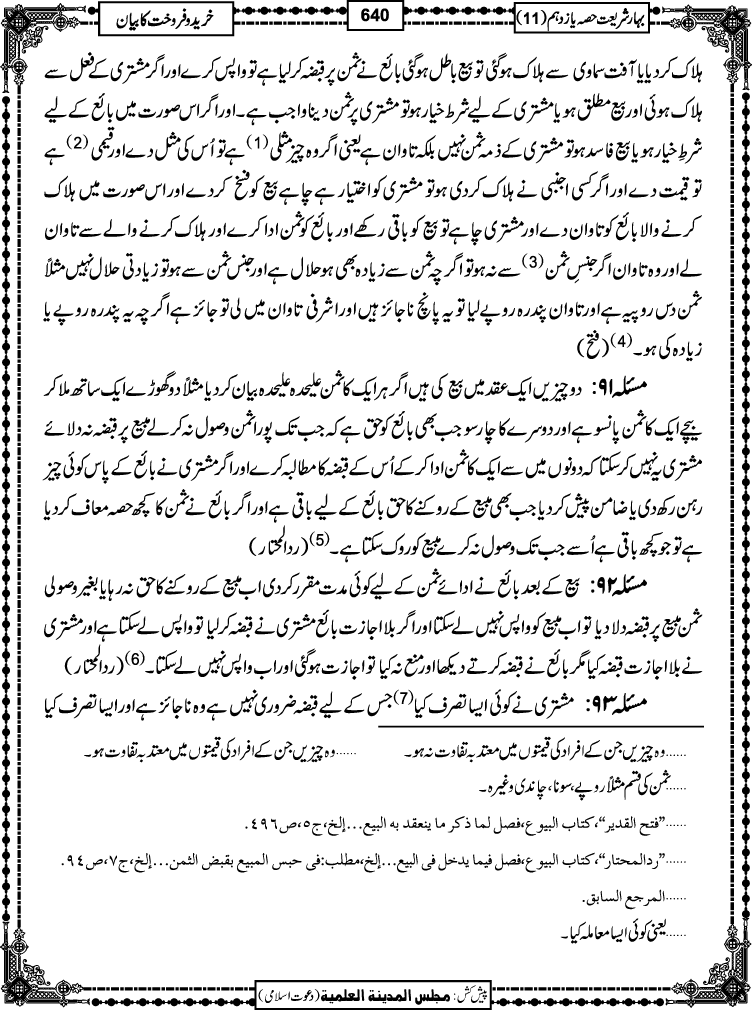 بہارِ شریعت حصہ یازدہم (11)
640
خرید و فروخت کا بیان
ہلاک کردیا یا آفت سماوی سے ہلاک ہوگئی تو بیع باطل ہوگئی بائع نے ثمن پر قبضہ کرلیا ہے تو واپس کرے اور اگر مشتری کے فعل سے
ہلاک ہوئی اور بیع مطلق ہو یا مشتری کے لیے شرط خیار ہو تو مشتری پر ثمن دینا واجب ہے۔ اور اگر اس صورت میں بائع کے لیے
شرطِ خیار ہو یا بیع فاسد ہو تو مشتری کے ذمہ ثمن نہیں بلکہ تاوان ہے یعنی اگر وہ چیز مثلی (1) ہے تو اُس کی مثل دے اور قیمی (2) ہے
تو قیمت دے اور اگر کسی اجنبی نے ہلاک کردی ہو تو مشتری کو اختیار ہے چاہے بیع کو فسخ کردے اور اس صورت میں ہلاک
کرنے والا بائع کو تاوان دے اور مشتری چاہے تو بیع کو باقی رکھے اور بائع کو ثمن ادا کرے اور ہلاک کرنے والے سے تاوان
لے اور وہ تاوان اگر جنسِ ثمن (3) سے نہ ہو تو اگرچہ ثمن سے زیادہ بھی ہو حلال ہے اور جنس ثمن سے ہو تو زیادتی حلال نہیں مثلاً
ثمن دس روپیہ ہے اور تاوان پندرہ روپے لیا تو یہ پانچ ناجائز ہیں اور اشرفی تاوان میں لی تو جائز ہے اگرچہ یہ پندرہ روپے یا
زیادہ کی ہو۔ (4) (فتح)
مسئلہ ۹۱: دو چیزیں ایک عقد میں بیع کی ہیں اگر ہر ایک کا ثمن علیحدہ علیحدہ بیان کردیا مثلاً دو گھوڑے ایک ساتھ ملا کر
بیچے ایک کا ثمن پانسو ہے اور دوسرے کا چار سو جب بھی بائع کو حق ہے کہ جب تک پورا ثمن وصول نہ کرلے مبیع پر قبضہ نہ دلائے
مشتری یہ نہیں کرسکتا کہ دونوں میں سے ایک کا ثمن ادا کرکے اُس کے قبضہ کا مطالبہ کرے اور اگر مشتری نے بائع کے پاس کوئی چیز
رہن رکھ دی یا ضامن پیش کردیا جب بھی مبیع کے روکنے کا حق بائع کے لیے باقی ہے اور اگر بائع نے ثمن کا کچھ حصہ معاف کردیا
ہے تو جو کچھ باقی ہے اُسے جب تک وصول نہ کرے مبیع کو روک سکتا ہے۔ (5) (ردالمحتار)
مسئلہ ۹۲: بیع کے بعد بائع نے ادائے ثمن کے لیے کوئی مدت مقرر کردی اب مبیع کے روکنے کا حق نہ رہا یا بغیر وصولی
ثمن مبیع پر قبضہ دلا دیا تو اب مبیع کو واپس نہیں لے سکتا اور اگر بلا اجازت بائع مشتری نے قبضہ کرلیا تو واپس لے سکتا ہے اور مشتری
نے بلا اجازت قبضہ کیا مگر بائع نے قبضہ کرتے دیکھا اور منع نہ کیا تو اجازت ہوگئی اور اب واپس نہیں لے سکتا۔ (6) (ردالمحتار)
مسئلہ ۹۳: مشتری نے کوئی ایسا تصرف کیا (7) جس کے لیے قبضہ ضروری نہیں ہے وہ ناجائز ہے اور ایسا تصرف کیا
......وہ چیزیں جن کے افراد کی قیمتوں میں معتد بہ تفاوت نہ ہو۔ ......وہ چیزیں جن کے افراد کی قیمتوں میں معتد بہ تفاوت ہو۔
......ثمن کی قسم مثلاً روپے، سونا، چاندی وغیرہ۔
......”فتح القدیر“، کتاب البیوع، فصل لما ذکر ما ینعقد به البیع...إلخ، ج۵، ص۴۹۶.
......”ردالمحتار“، کتاب البیوع، فصل فیما یدخل فی البیع...إلخ، مطلب: فی حبس المبیع بقبض الثمن...إلخ، ج۷، ص۹۴.
......المرجع السابق.
......یعنی کوئی ایسا معاملہ کیا۔
پیش کش: مجلس المدینة العلمیة (دعوت اسلامی)